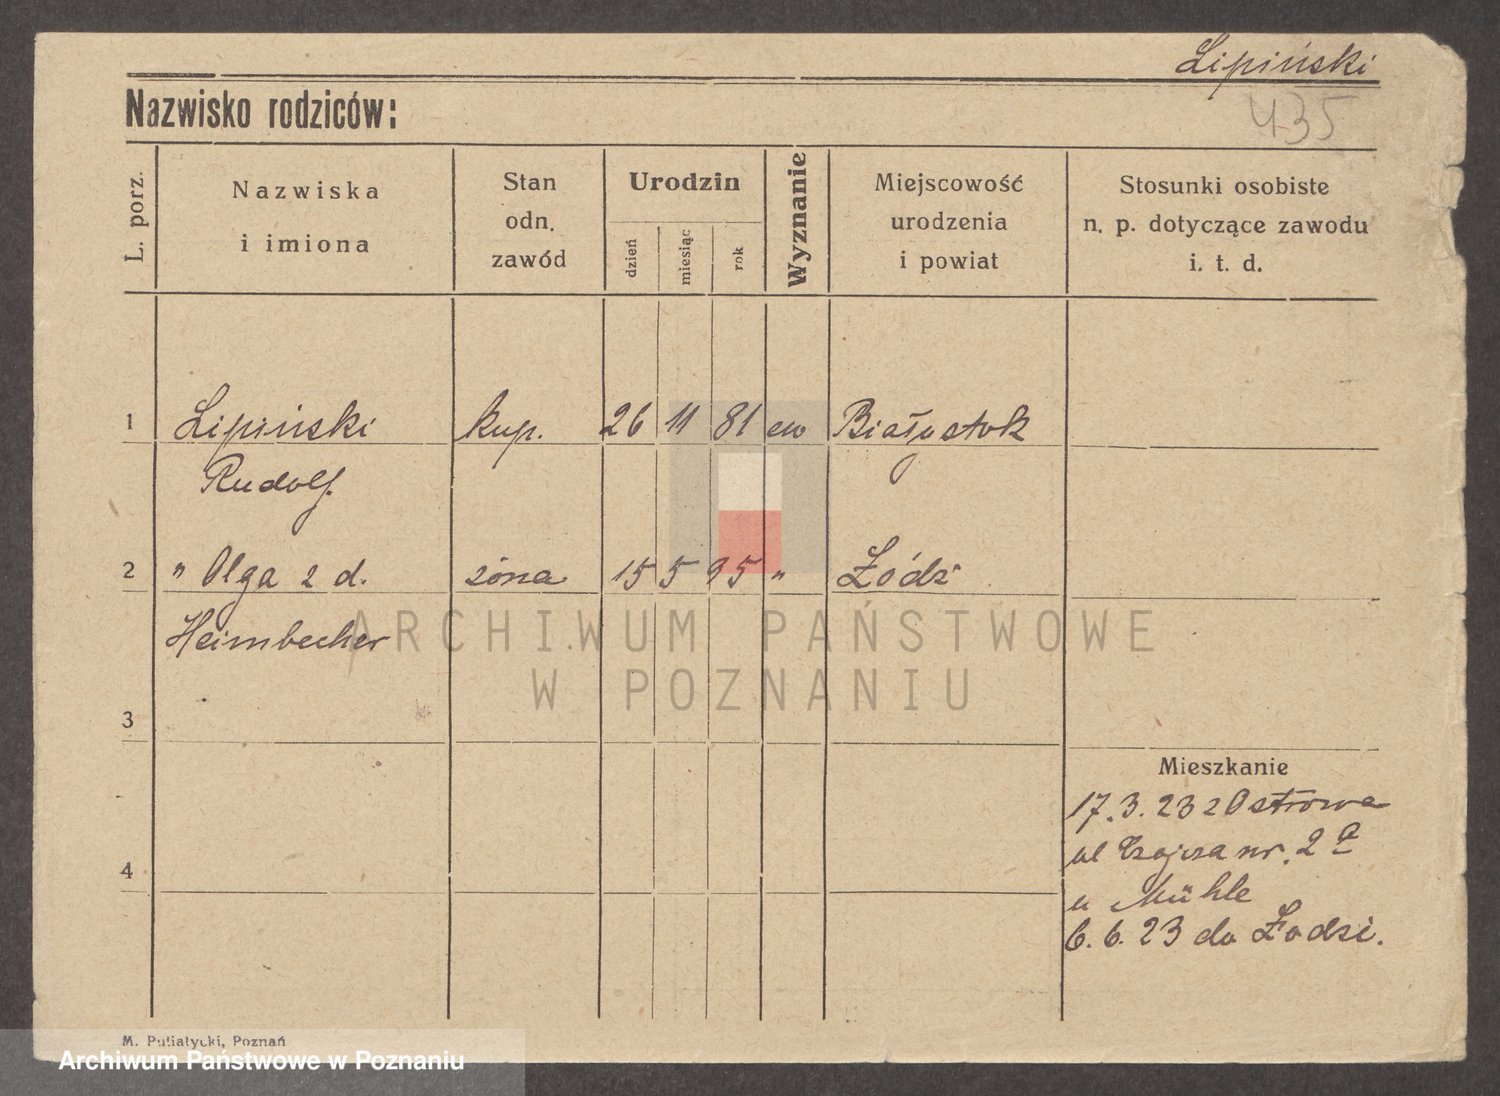 Lipiński
435
Nazwisko rodziców:
L. porz.
Nazwiska
i imiona
Stan
odn.
zawód
Urodzin
dzień
miesiąc
rok
Wyznanie
Miejscowość
urodzenia
i powiat
Stosunki osobiste
n. p. dotyczące zawodu
i. t. d.
1 Lipiński kup. 26 11 81 ew Białystok
Rudolf
2 " Olga z d. żona 15 5 95 " Łódź
Heimbecher
3
Mieszkanie
17.3.23 z Ostrowa
ul nr. 2a
4
u Mühle
6.6.23 do Łodzi.
M. Putiatycki, Poznań
ARCHIWUM PAŃSTWOWE
W POZNANIU
Archiwum Państwowe w Poznaniu